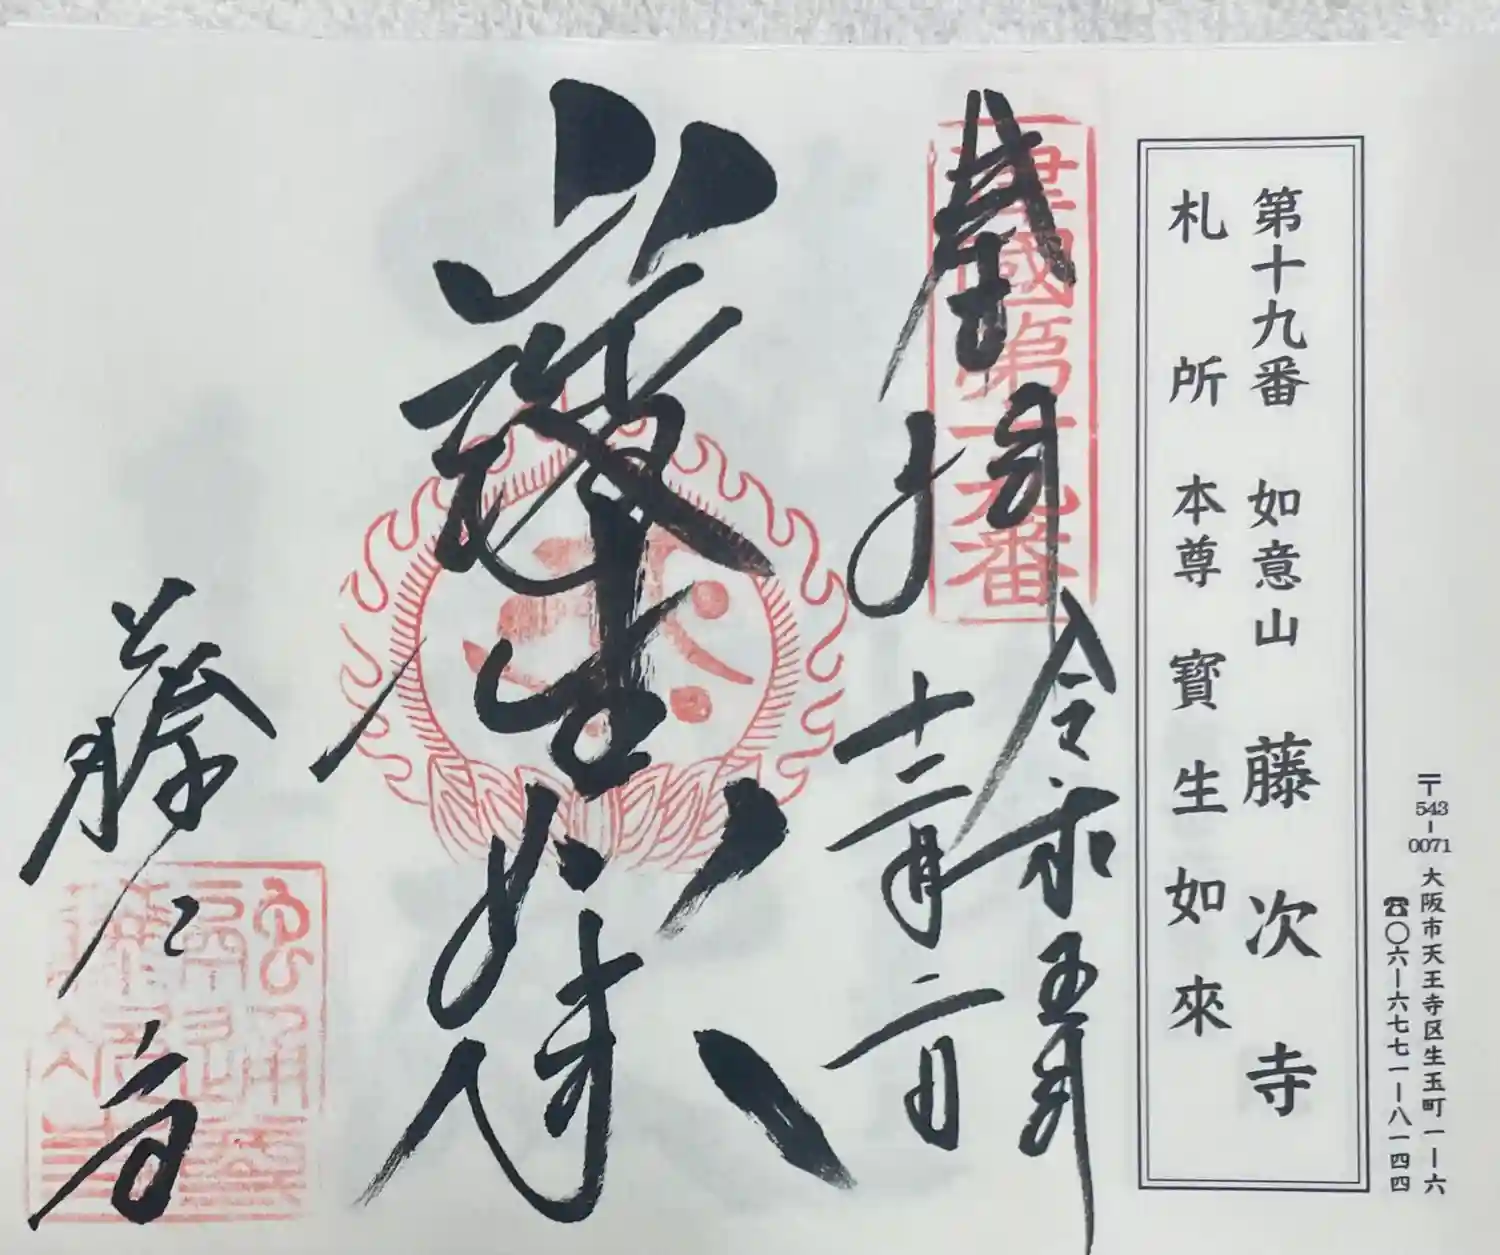 〒543-0071 大阪市天王寺区生玉町一-一六
☎〇六-六七七一-八一四四
第十九番 如意山 藤次寺
札所 本尊 寶生如來
國第十九番
奉拝
令和五年
十二月二日
寶生如来
藤次寺